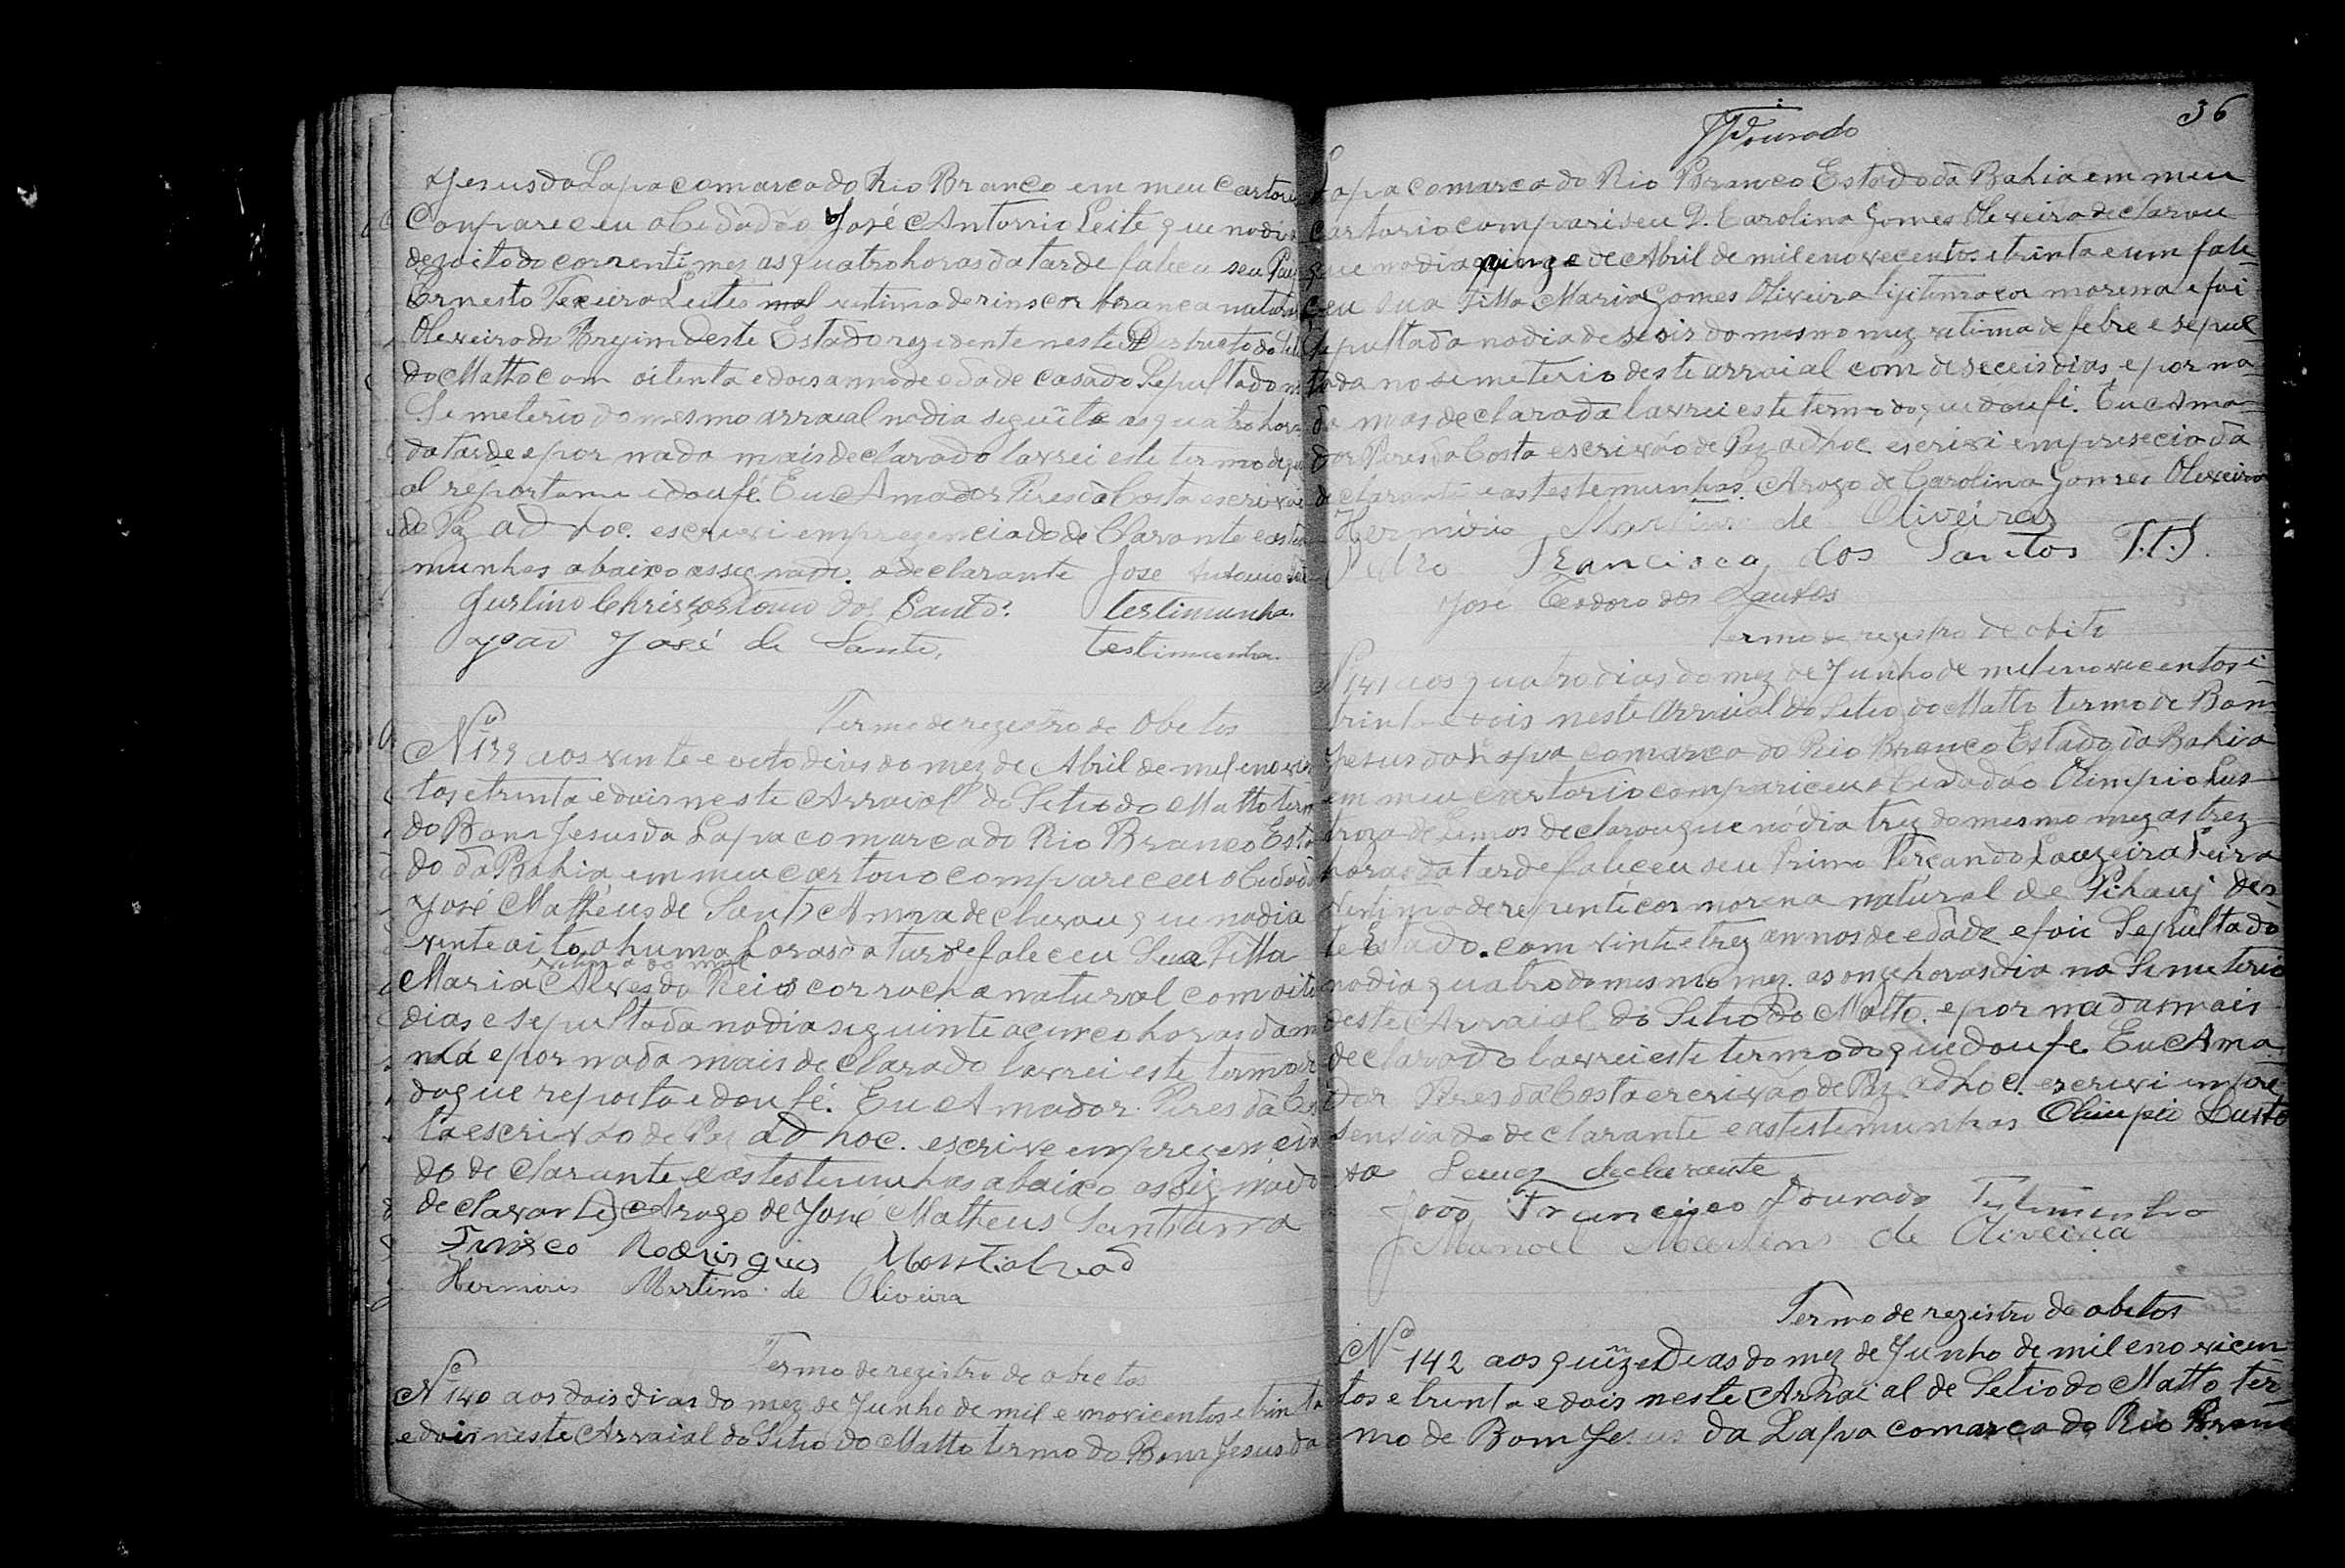 Jesus da Lapa comarca do Rio Branco em meu Cartori
Compareceu o Cidadão José Antonio Leite que no dia
desoito do corrente mez as quatro horas da tarde faleceu seu Pay
Ernesto Texeira Leite mal vitima de rins cor branca natural
Olexeira do Brejim deste Estado rezidente neste Destructo do Setio
do Matto com oitenta e dois anno de edade casado Sepultado no
Semeterio do mesmo arraial no dia seguite as quatro horas
da tarde e por nada mais declarado lavrei este termo de qu
al reportame e dou fé. Eu Amador Pires da Costa escrivão
de Paz ad hoc. escrivi em prezencia do de Clarante e as teste
munhas abaixo assignado. o declarante José Antonio Leite
Justino Chrisostomo dos Santos. testimunha
João José de Santo, testimunha
Termo de registro de Obetos
Nº 139 aos vinte e oeto dias do mez de Abril de mil e novicen
tos e trinta e dois neste Arraial do Setio do Matto termo
do Bom Jesus da Lapa comarca do Rio Branco Esta
do da Bahia em meu cartorio compareceu o Cidadão
José Mathéus de Sant Anna declarou que no dia
vinte oito a huma horas da tarde faleceu Sua Filha
vitima do mal
Maria Alves do Reis cor rocha natural com oito
dias e sepultada no dia seguinte a cinco horas da m
nhã e por nada mais de Clarado lavrei este termo de
do que reporto e dou fé. Eu Amador Pires da Cos
ta escrivão de Paz ad hoc. escrive em prezencia
do de clarante e as testemunhas abaixo assignado
de clarante Arogo de José Matheus Santanna
Rodrigues Montalvaõ
Herminio Martins de Oliveira
Termo de registro de obetos
Nº 140 aos dois dias do mez de Junho de mil e novicentos e trinta
e dois neste Arraial do Setio do Matto termo do Bom Jesus da
36
Dourado
Lapa comarca do Rio Branco Estado da Bahia em meu
cartorio compariseu D. Carolina Gomes Olexeira declarou
que no dia quinze de Abril de mil e novecentos e trinta e um fale-
ceu sua Filha Maria Gomes Oliveira lijitima cor morena e foi
Sepultada no dia desesis do mesmo mez vitima de febre e sepul
tada no semeterio deste arraial com deseceis dias e por na-
da mas declarada lavrei este termo do que dou fé. Eu Ama-
dor Peres da Costa escrivão de Paz ad hoc escrivi em presecia da
declarante e as testemunhas. Arogo de Carolina Gomes Olexeira
Herminio Martins de Oliveira
Pedro Francisco dos Santos T.T.S.
José Teodoro dos Santos
Termo de registro de obito
Nº 141 aos quatro dias do mez de Junho de mil e novicentos e
trinta e dois neste Arraial do Setio do Matto termo de Bom
Jesus da Lapa comarca do Rio Branco Estado da Bahia
em meu cartorio compariceu o Cidadão Olimpio Lus-
troza de Lemos declarou que no dia trez do mesmo mez as trez
horas da tarde faliceu seu Primo
vitima de repente cor morena natural de Pihauj des-
te Estado. com vinte trez annos de edade e foii Sepultado
no dia quatro do mesmo mez. as onze horas dia no Semeterio
deste Arraial do Setio Do Matto. e por nada mais
declarado lavrei este termo do que dou fe. Eu Ama
dor Pires da Costa ercrivão de Paz. ad hoc. escrivi em pre
sencia do declarante e as testemunhas Olimpio Lusto
sa Lemos declarante
João Francisco Dourado Testimunha
Manoel Martins de Oliveira
Termo de registro de obetos
Nº 142 aos quize Dias do mez de Junho de mil e novicen
tos e trinta e dois neste Arraial de Setio do Matto ter-
mo de Bom Jesus da Lapa comarca do Rio Branc